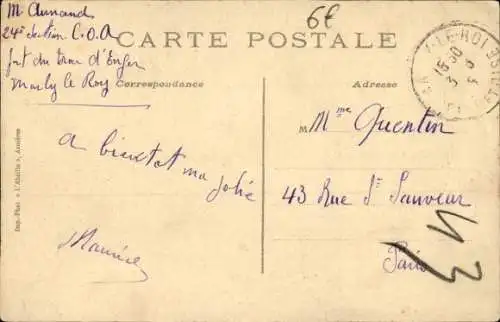 M. Armand
24e Section C.O.A
fort du trou d'Enfer
Marly le Roy
6€
CARTE POSTALE
Correspondance
Adresse
MARLY-LE-ROI
15 30
3 - 5
Imp.-Phot « L'Abeille », Asnières
a bientot ma
jolie
Maurice
M Mme Quentin
43 Rue St Sauveur
Paris